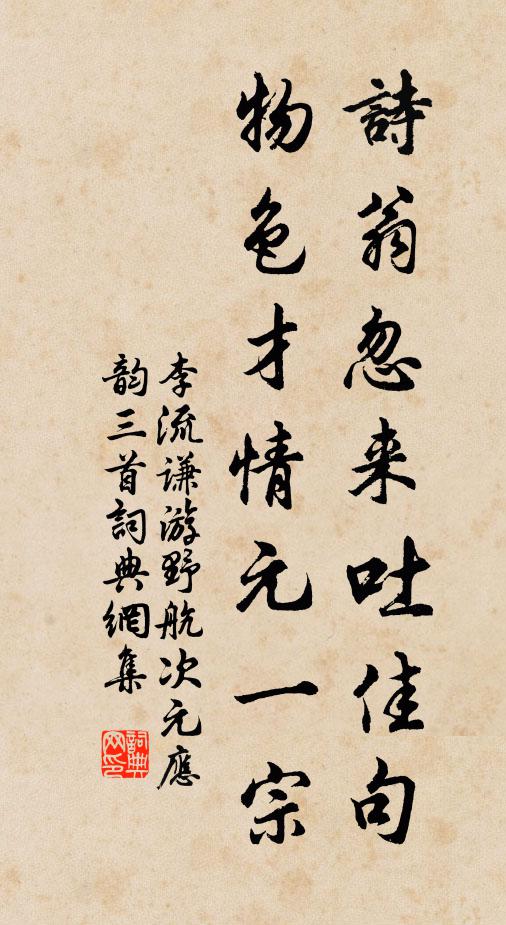 詩翁忽来吐佳句
物色才情元一宗
李流谦游野航次元應
韵三首詞典網集
詞典
网印